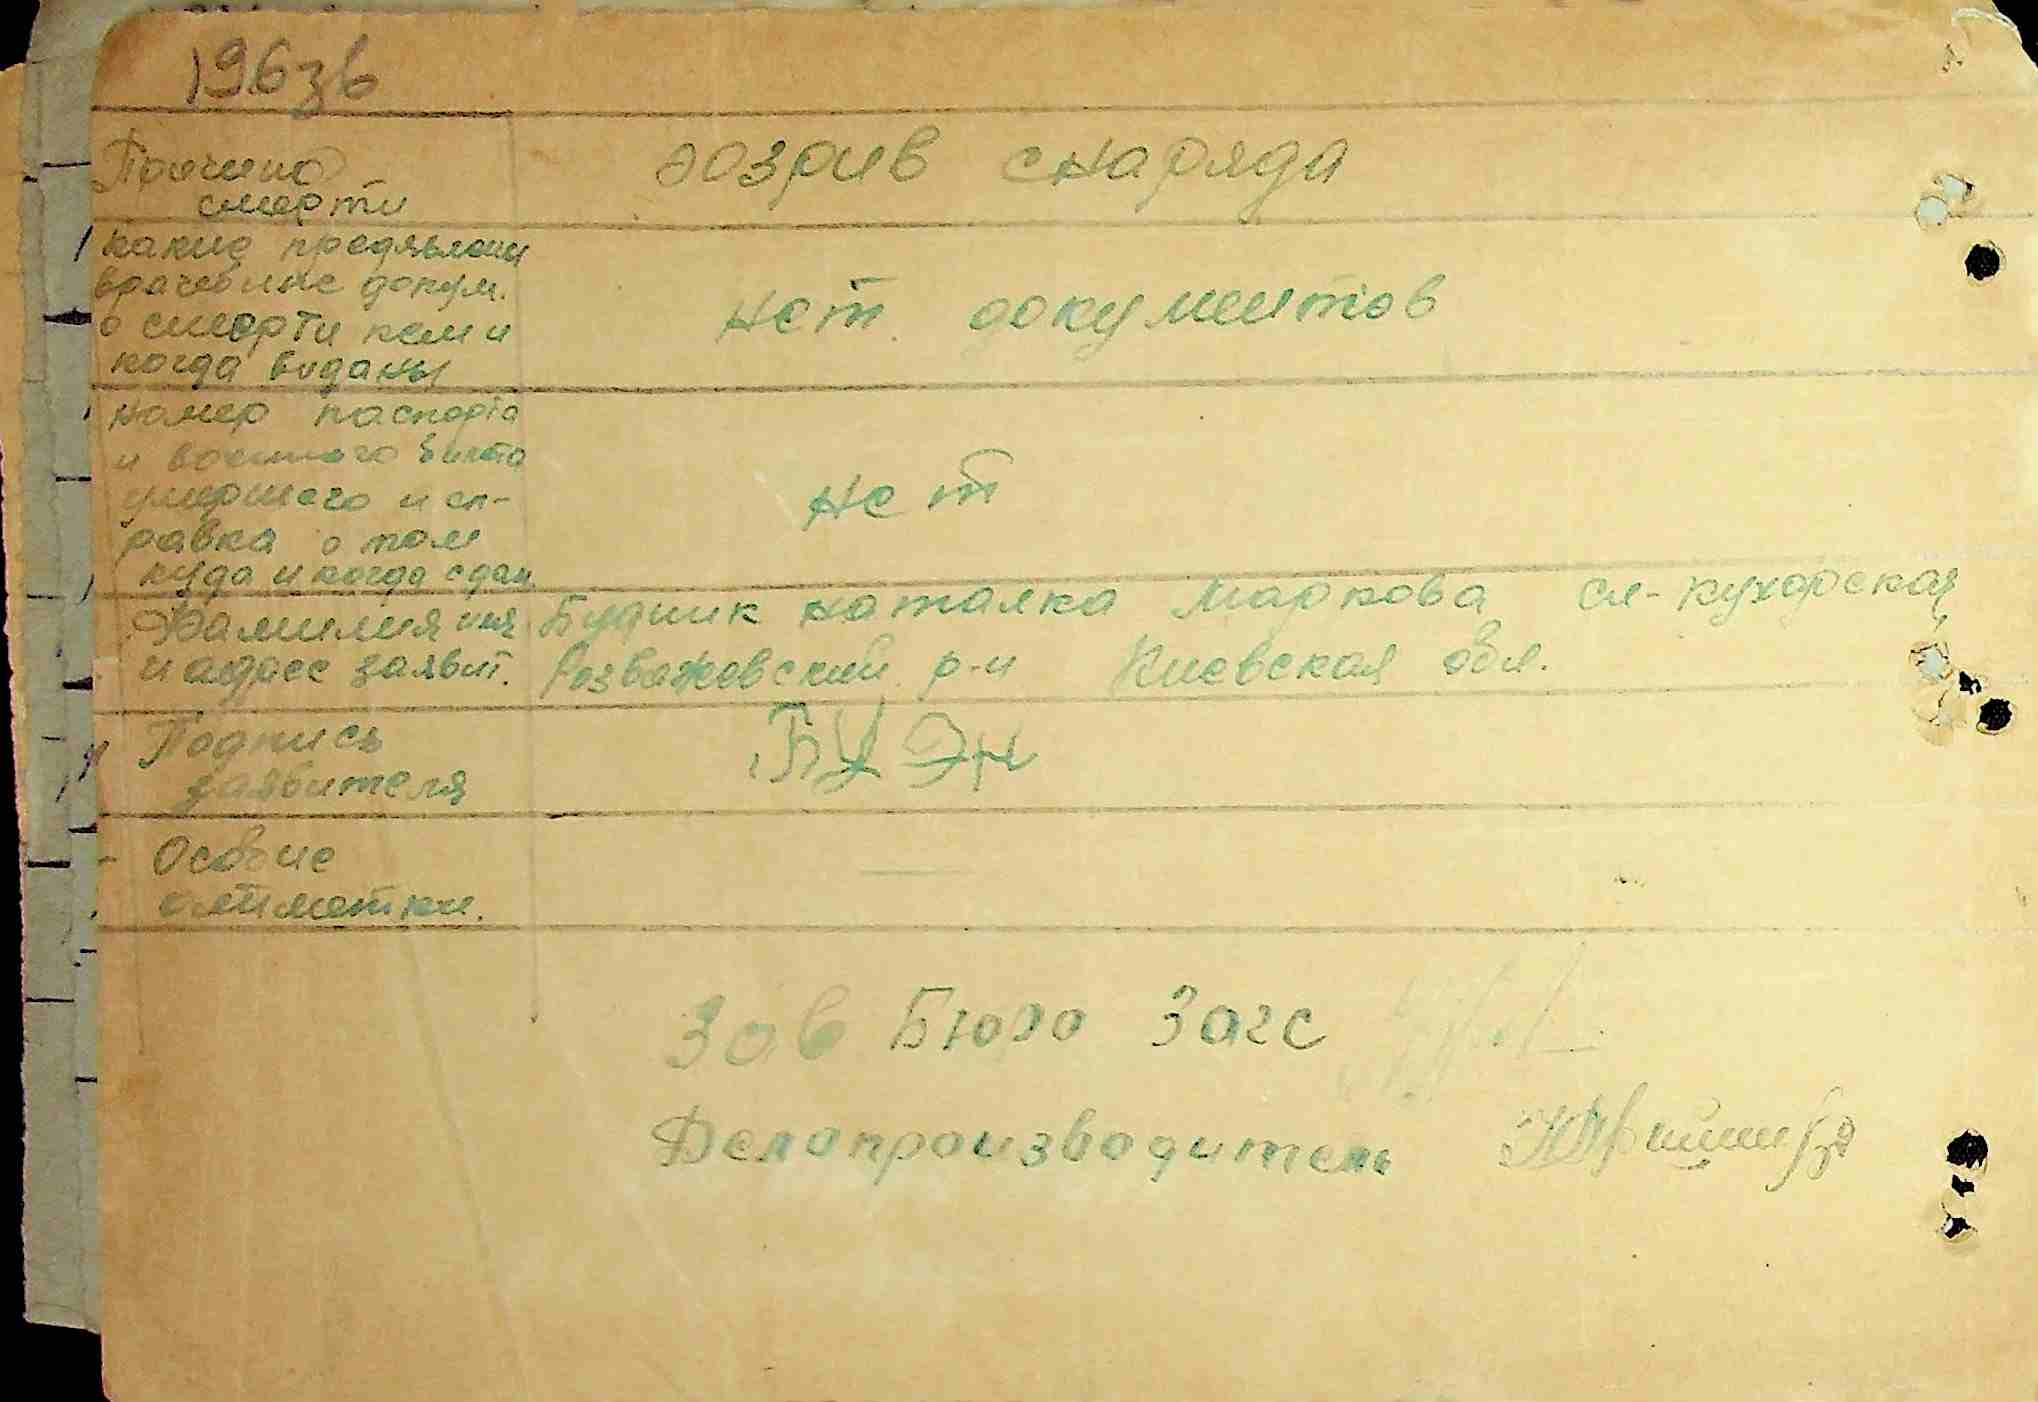 196зв
Причина
смерти
возрив снаряда
какие предявлени
врачебние докум.
о смерти кем и
когда видани
нет документов
номер паспорта
и военного билета
умершего и сп-
равка о том
куда и когда сдан
нет
Фамилия имя
и адресс заявит.
Будник Наталка Маркова сл-Кухарская
Розважевский р-н Киевская обл.
Подпись
заявителя
Особие
Зав Бюро Загс
Делопроизводитель